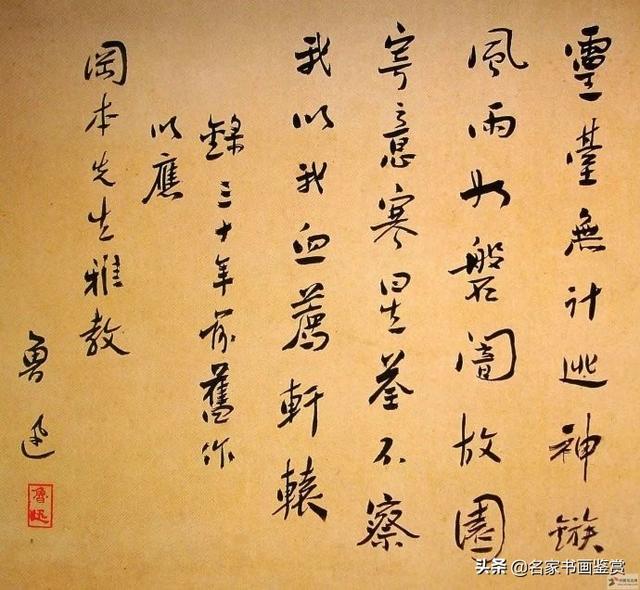 靈臺無計逃神鏃
風雨如磐闇故園
寄意寒星荃不察
我以我血薦軒轅
錄三十年前舊作
以應
岡本先生雅教
魯迅
魯迅
头条 @名家书画鉴赏